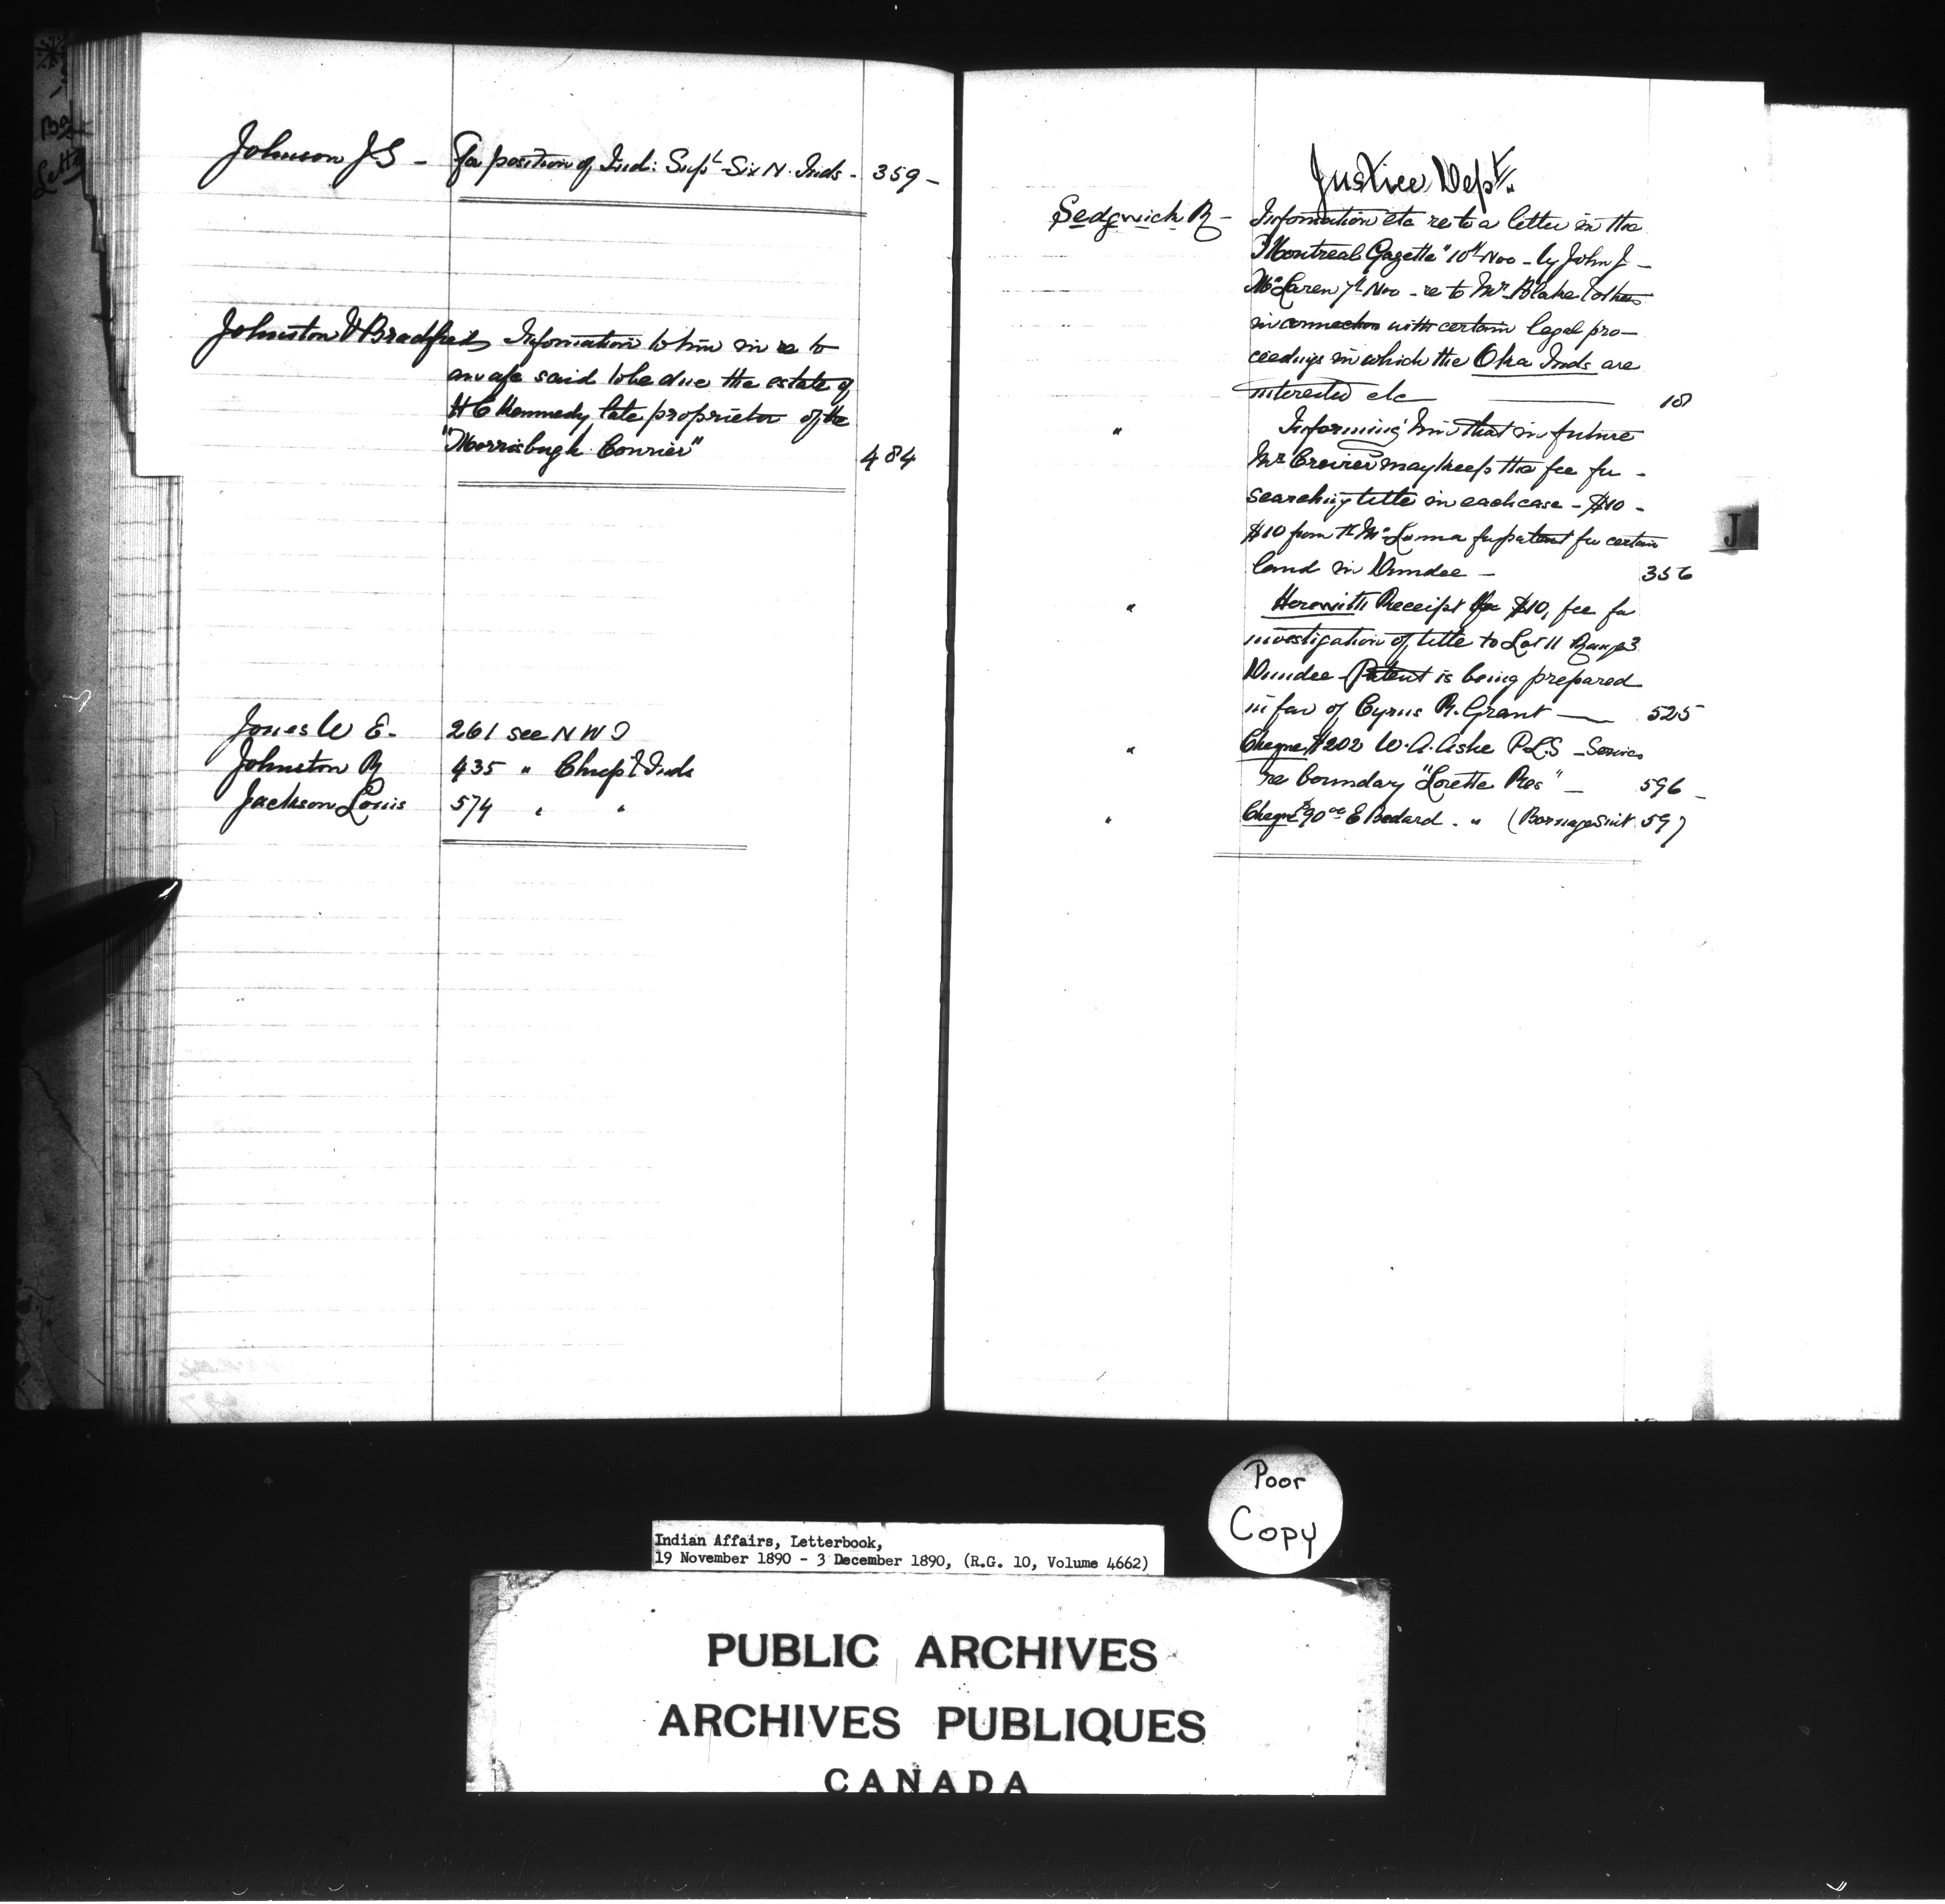 Johnson J S - For position of Ind: Supt Six N. Inds - 359 -
Johnston & Bradfield Information to him in re to
an a/c said to be due the estate of
H C Kennedy, late proprietor of the
"Morrisburgh Courier" 484
Jones W E - 261 see N W
Johnston R 435 " Chief & Inds
Jackson Louis 574 " "
Justice Dept.
Sedgwick R - Information etc re to a letter in the
"Montreal Gazette" 10th Nov - by John J -
McLaren 7th Nov - re to Mr Blake & others
in connection with certain legal pro-
ceedings in which the Oka Inds are
interested etc
" Informing him that in future
Mr may keep the fee for -
searching title in each case - $10 -
$10 from for patent for certain
land in Dundee - 356
" Herewith Receipt for $10, fee for
investigation of title to Lot 11 Range 3
Dundee - Patent is being prepared
in fav of Cyrus R. Grant - 525
" Cheque $202 W. A. Ashe P.L.S - Services
re boundary "Lorette Res" - 596 -
" Cheque $90 00 E Bedard - " ( Suit 597
J
Poor
Copy
Indian Affairs, Letterbook,
19 November 1890 - 3 December 1890, (R.G. 10, Volume 4662)
PUBLIC ARCHIVES
ARCHIVES PUBLIQUES
CANADA